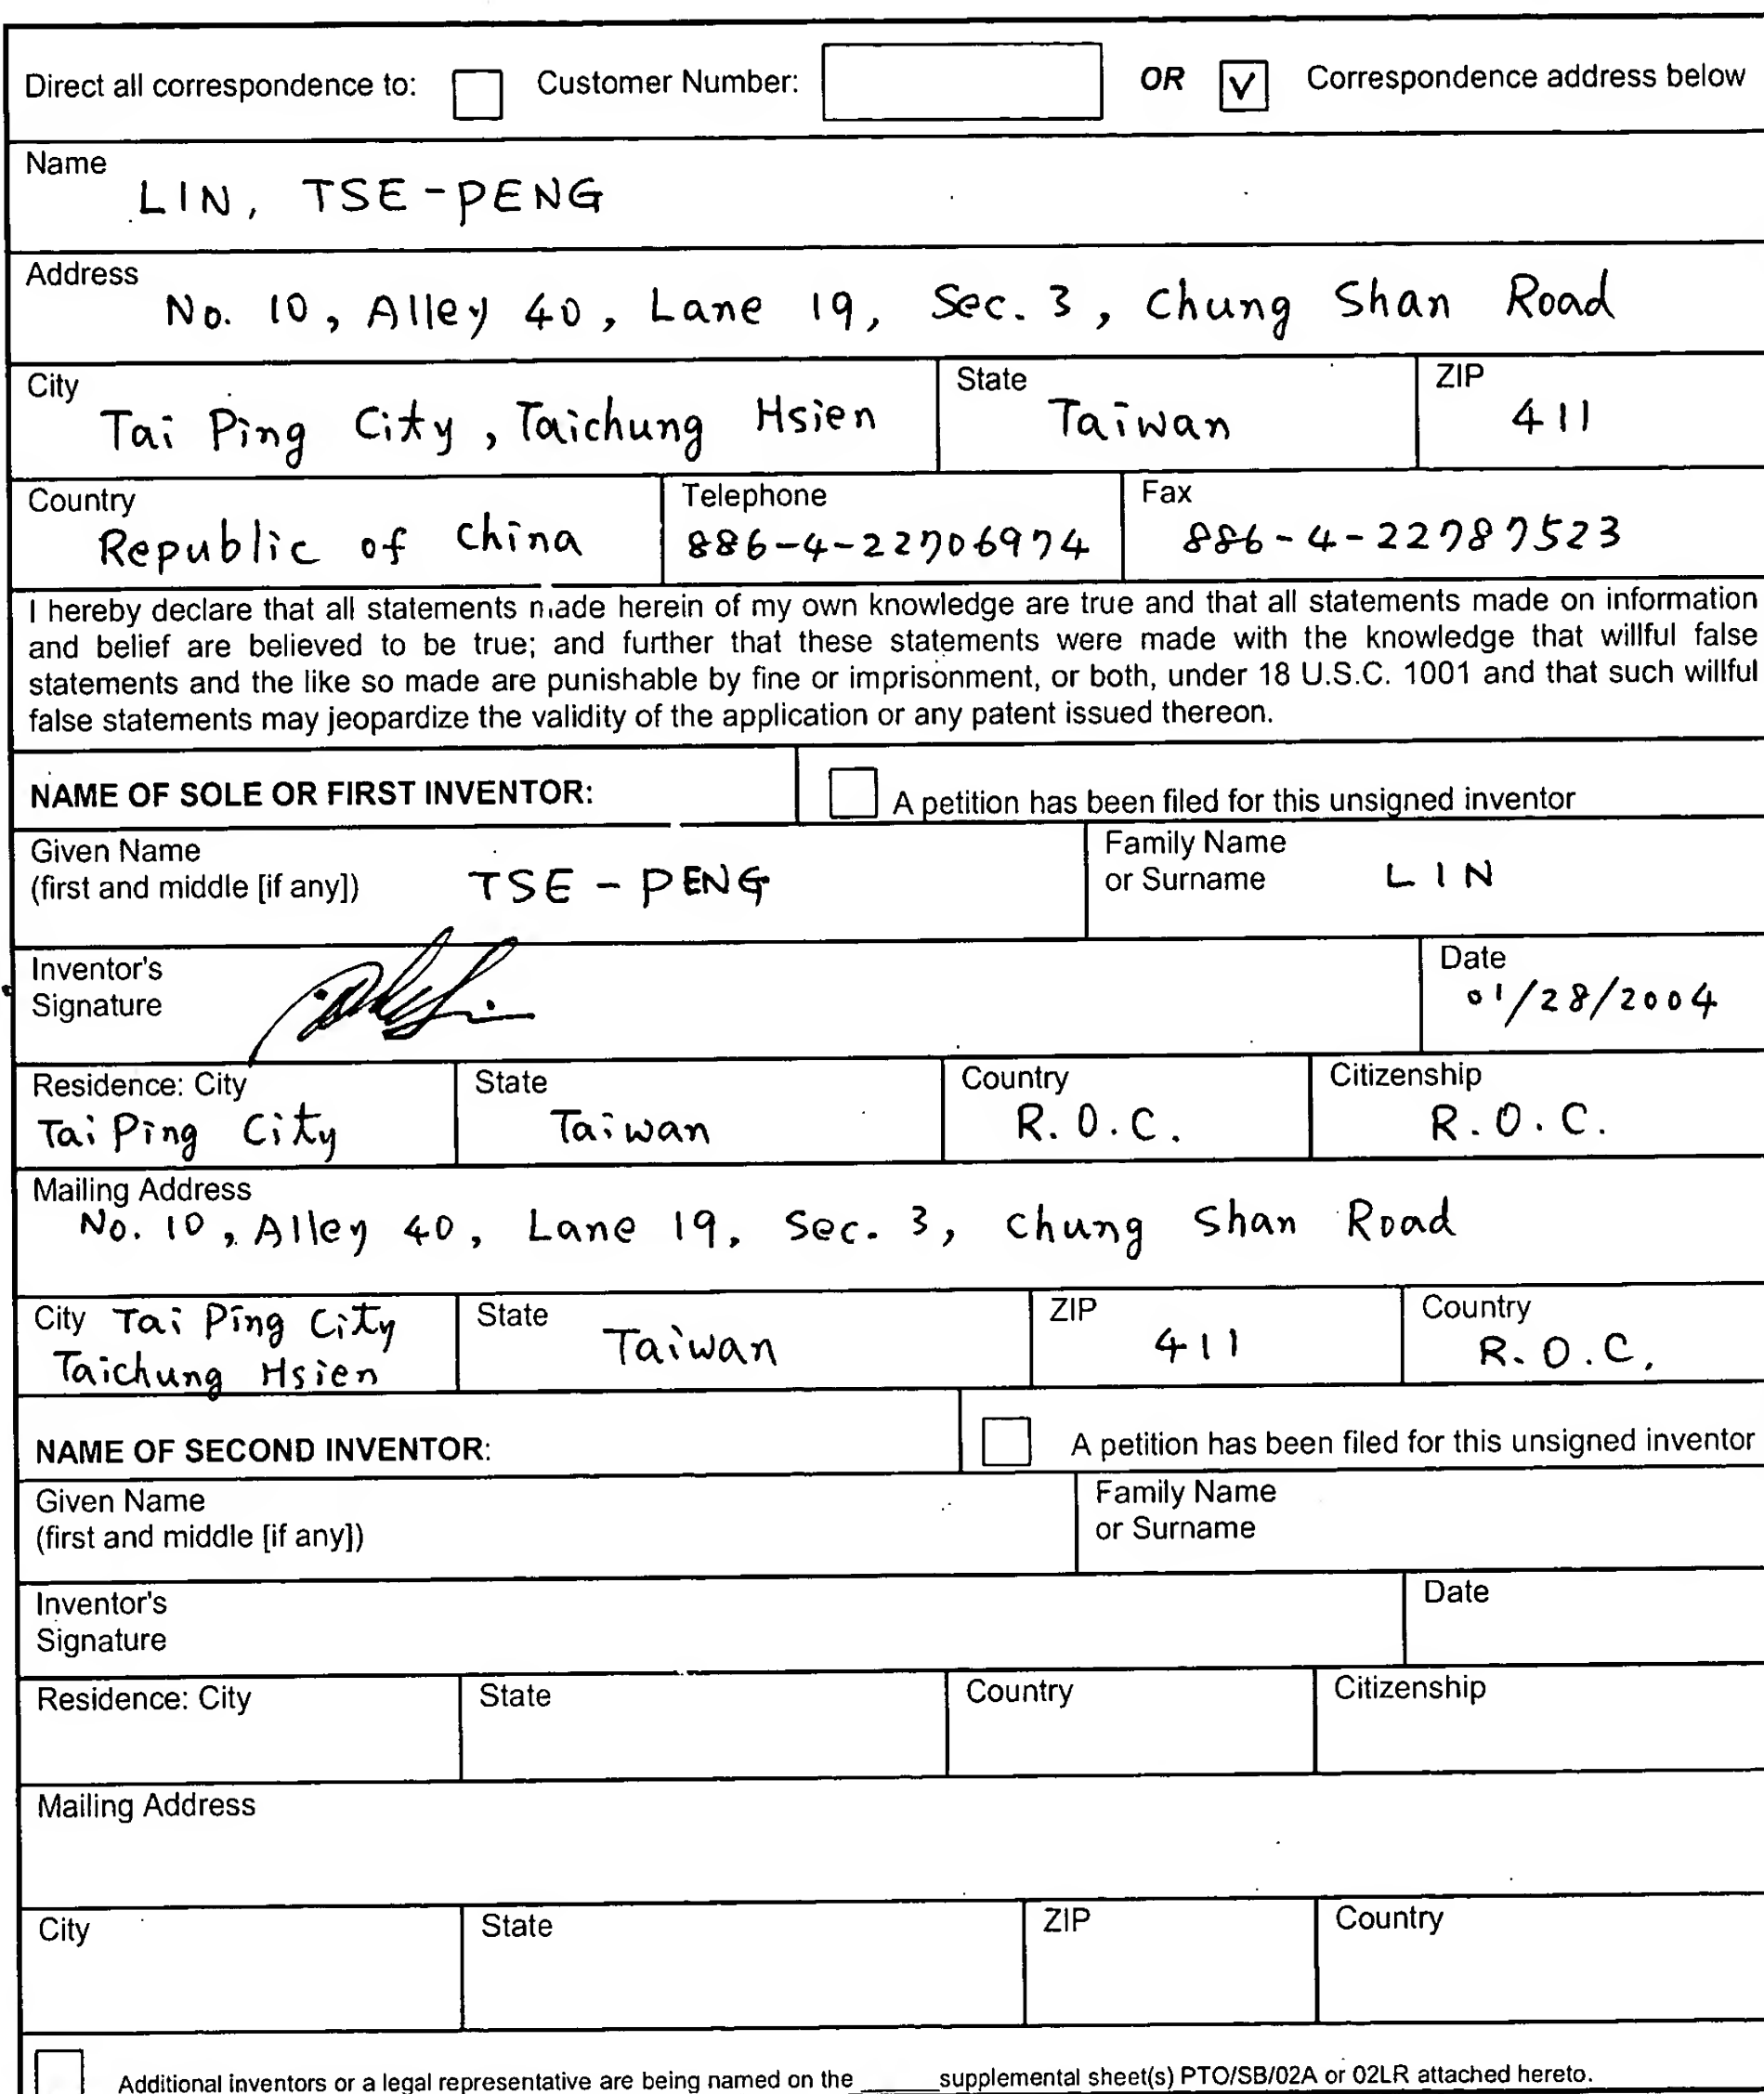 Direct all correspondence to: Customer Number: OR V Correspondence address below
Name
LIN, TSE-PENG
Address
No. 10, Alley 40, Lane 19, Sec. 3, Chung Shan Road
City State ZIP
Tai Ping City, Taichung Hsien Taiwan 411
Country Telephone Fax
Republic of China 886-4-22706974 886-4-22787523
I hereby declare that all statements made herein of my own knowledge are true and that all statements made on information
and belief are believed to be true; and further that these statements were made with the knowledge that willful false
statements and the like so made are punishable by fine or imprisonment, or both, under 18 U.S.C. 1001 and that such willful
false statements may jeopardize the validity of the application or any patent issued thereon.
NAME OF SOLE OR FIRST INVENTOR: A petition has been filed for this unsigned inventor
Given Name Family Name
(first and middle [if any]) TSE-PENG or Surname LIN
Inventor's Date
Signature 01/28/2004
Residence: City State Country Citizenship
Tai Ping City Taiwan R.O.C. R.O.C.
Mailing Address
No. 10, Alley 40, Lane 19, Sec. 3, Chung Shan Road
City Tai Ping City State ZIP Country
Taichung Hsien Taiwan 411 R.O.C.
NAME OF SECOND INVENTOR: A petition has been filed for this unsigned inventor
Given Name Family Name
(first and middle [if any]) or Surname
Inventor's Date
Signature
Residence: City State Country Citizenship
Mailing Address
City State ZIP Country
Additional inventors or a legal representative are being named on the _____ supplemental sheet(s) PTO/SB/02A or 02LR attached hereto.